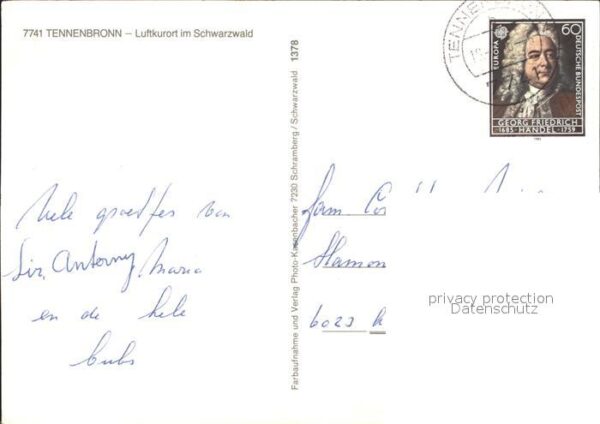 7741 TENNENBRONN – Luftkurort im Schwarzwald
1378
Farbaufnahme und Verlag Photo-Kasenbacher 7230 Schramberg / Schwarzwald
TENNE
EUROPA
60
DEUTSCHE BUNDESPOST
GEORG FRIEDRICH
1685 HÄNDEL 1759
Vele groetjes van
Antonny, Maria
en de hele
Fam.
6023
privacy protection
Datenschutz